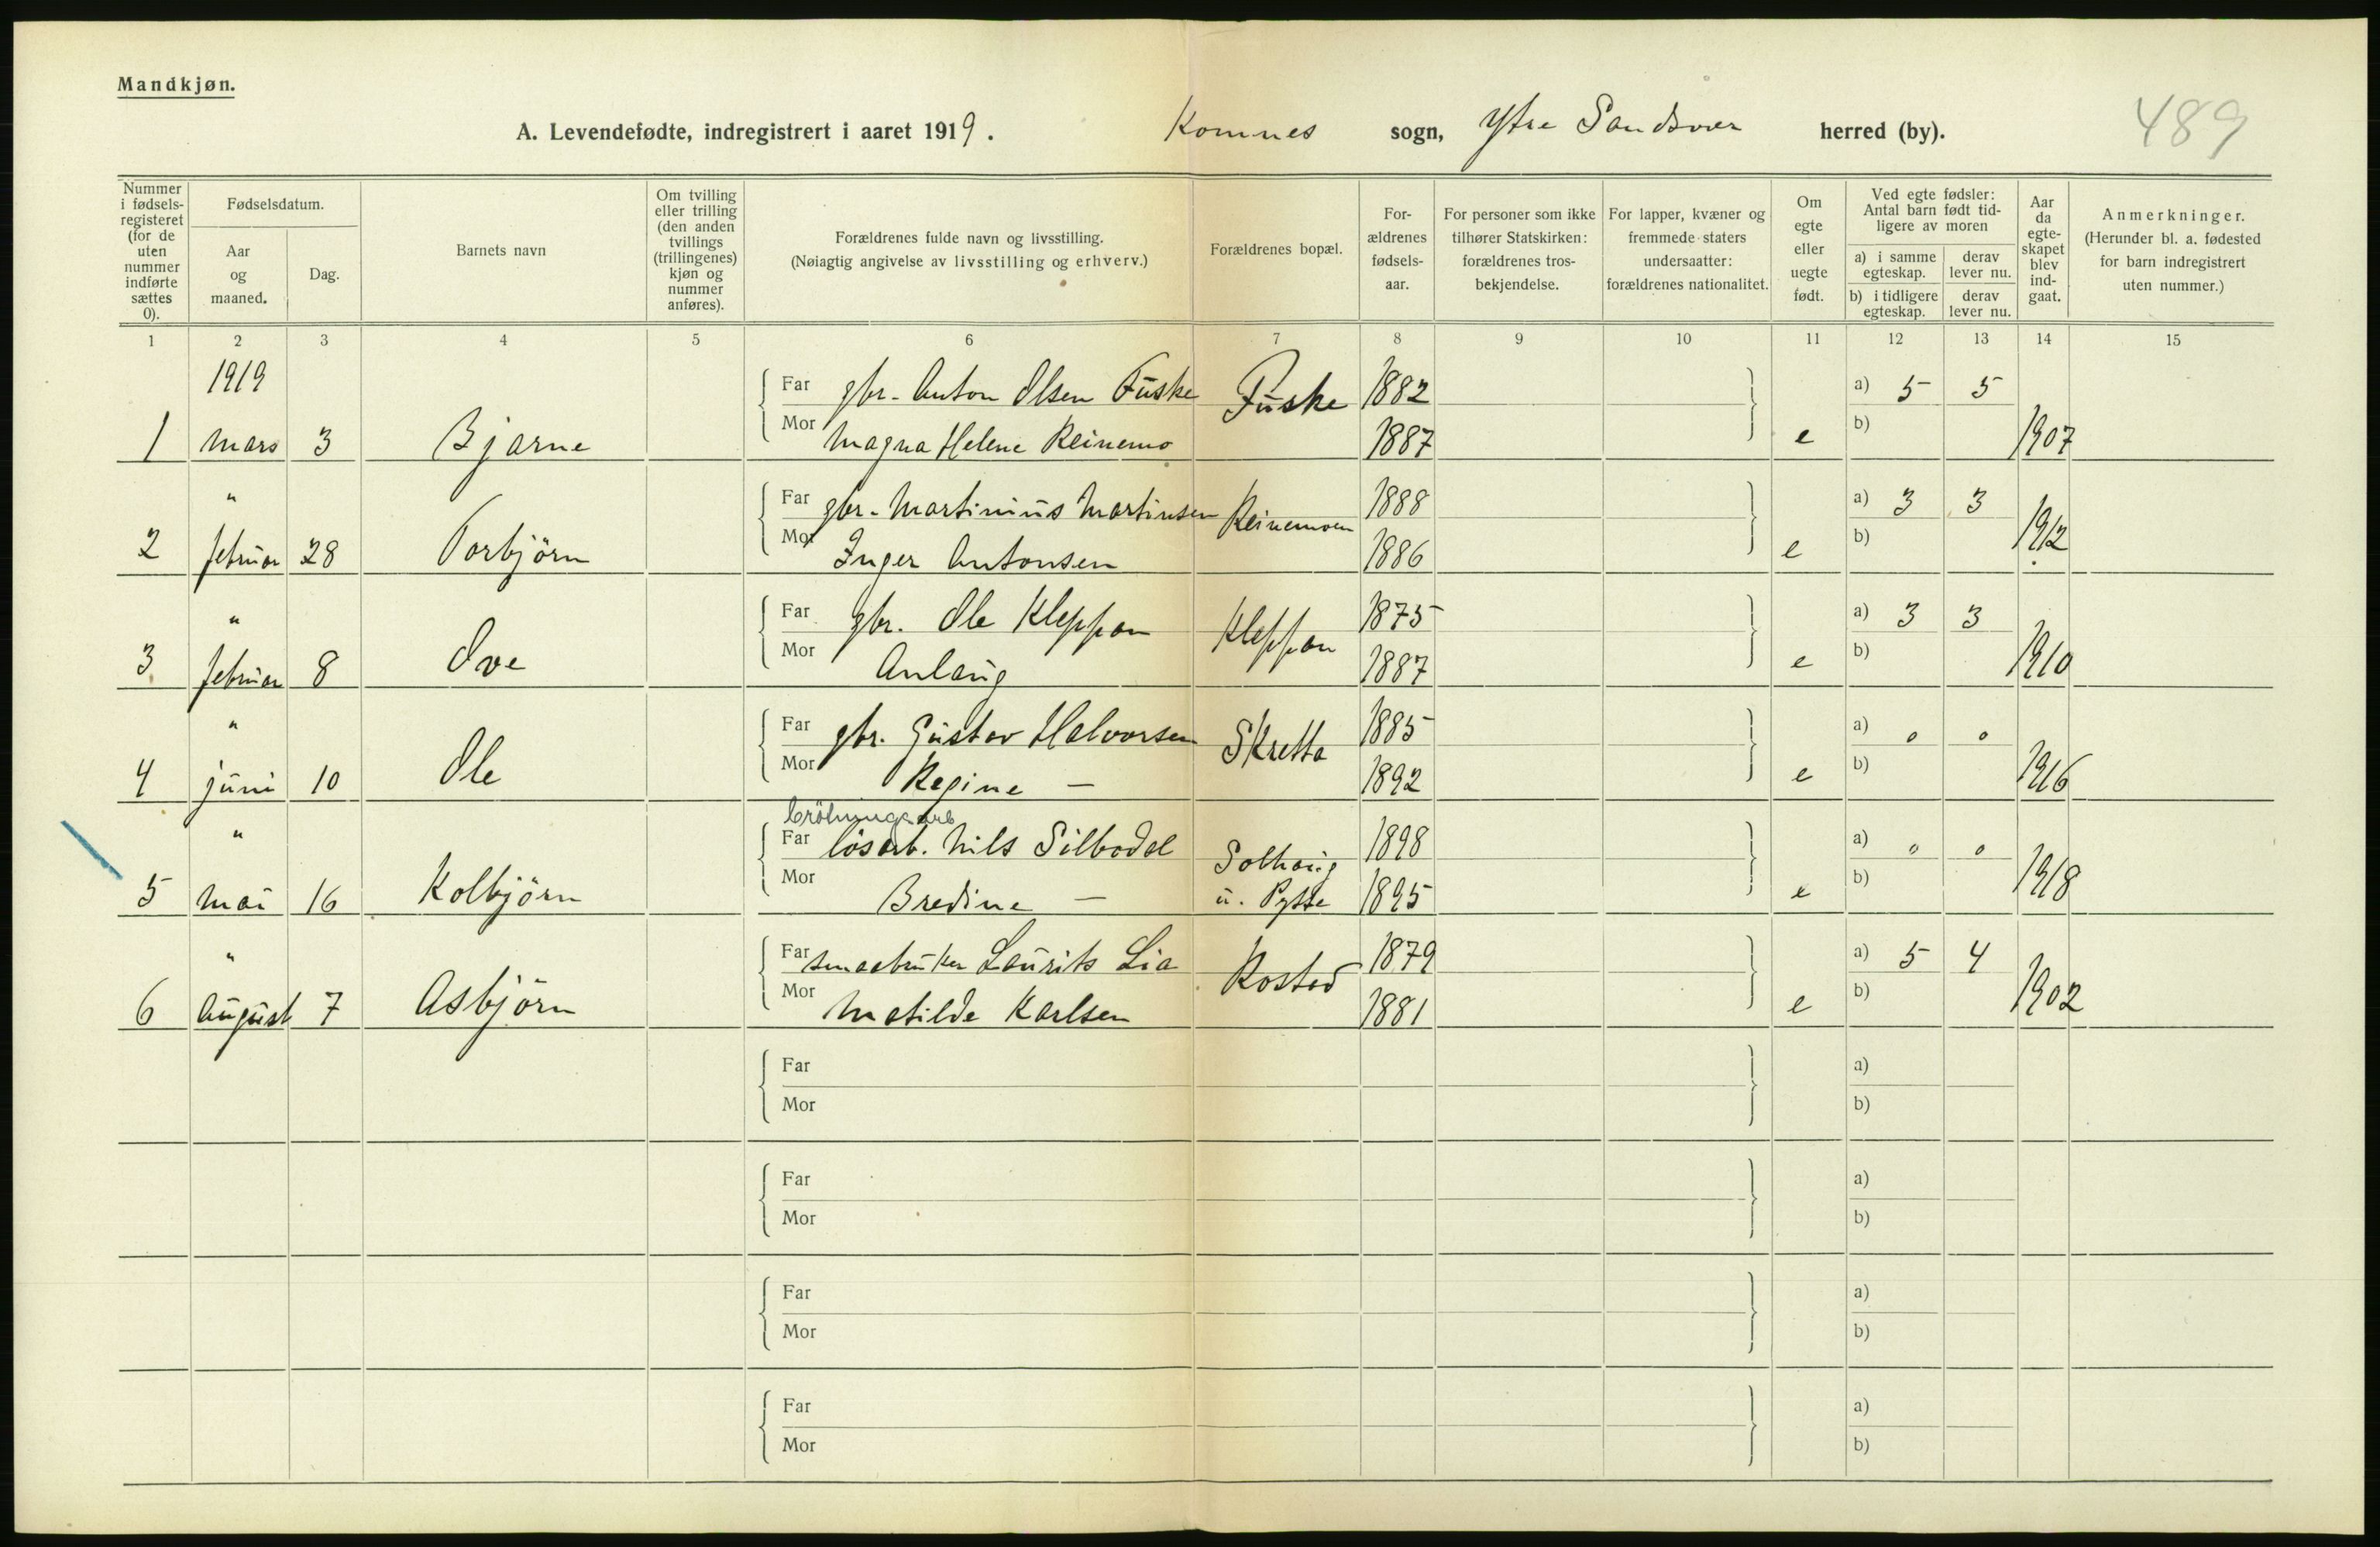 Mandkjøn.
A. Levendefødte, indregistrert i aaret 1919. Komnes sogn, Ytre Sandsvær herred (by). 489
Nummer i fødsels-registeret (for de uten nummer indførte sættes 0).
Fødselsdatum.
Aar og maaned.
Dag.
Barnets navn
Om tvilling eller trilling (den anden tvillings (trillingenes) kjøn og nummer anføres).
Forældrenes fulde navn og livsstilling.
(Nøiagtig angivelse av livsstilling og erhverv.)
Forældrenes bopæl.
For-ældrenes fødsels-aar.
For personer som ikke tilhører Statskirken: forældrenes tros-bekjendelse.
For lapper, kvæner og fremmede staters undersaatter: forældrenes nationalitet.
Om egte eller uegte født.
Ved egte fødsler: Antal barn født tid-ligere av moren
a) i samme egteskap.
derav lever nu.
b) i tidligere egteskap.
derav lever nu.
Aar da egte-skapet blev ind-gaat.
Anmerkninger.
(Herunder bl. a. fødested for barn indregistrert uten nummer.)
1 2 3 4 5 6 7 8 9 10 11 12 13 14 15
1919
Far gbr. Anton Olsen Fuske Fuske 1882 a) 5 5
1 mars 3 Bjarne Mor Magna Helene Reinemo 1887 e b) 1907
" Far gbr. Martinius Martinsen Reinemoen 1888 a) 3 3
2 februar 28 Torbjörn Mor Inger Antonsen 1886 e b) 1912
" Far gbr. Ole Kleppan Kleppan 1875 a) 3 3
3 februar 8 Ove Mor Anlaug 1887 e b) 1910
" Far gbr. Gustav Halvorsen Skretta 1885 a) 0 0
4 juni 10 Ole Mor Regine — 1892 e b) 1916
" Far lösarb. Nils Silbodal Solhaug 1898 a) 0 0
5 mai 16 Kolbjörn Mor Bredine — u. Pytte 1895 e b) 1918
" Far smaabruker Laurits Lia Rostad 1879 a) 5 4
6 August 7 Asbjörn Mor Matilde Karlsen 1881 e b) 1902
Far a)
Mor b)
Far a)
Mor b)
Far a)
Mor b)
Far a)
Mor b)